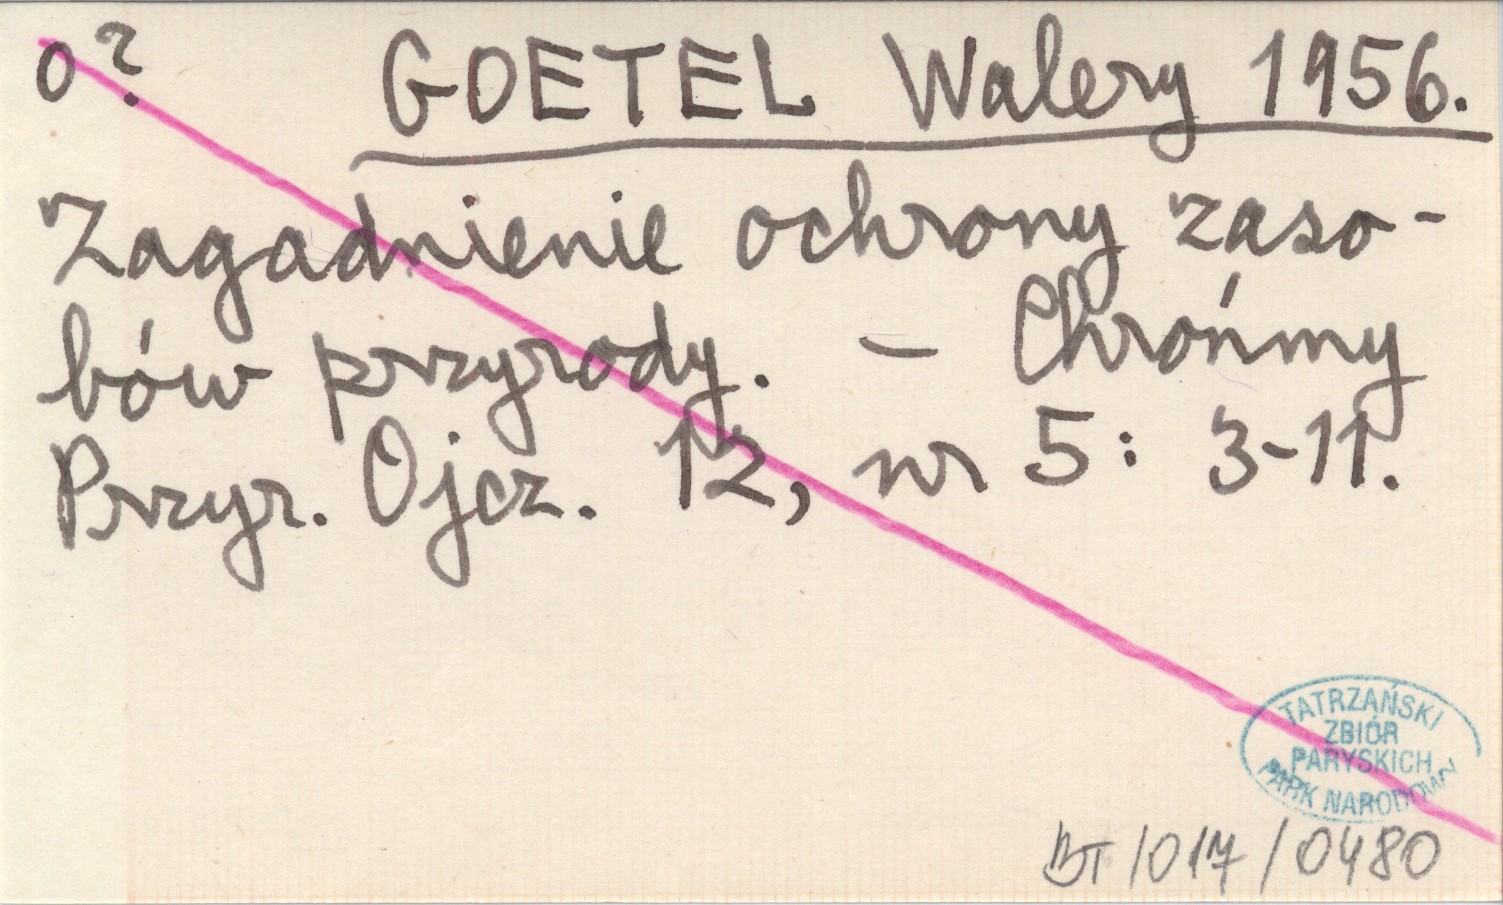 o? GOETEL Walery 1956.
Zagadnienie ochrony zaso-
bów przyrody. – Chrońmy
Przyr. Ojcz. 12, nr 5: 3-11.
TATRZAŃSKI
ZBIÓR
PARYSKICH
PARK NARODOWY
BT/017/0480